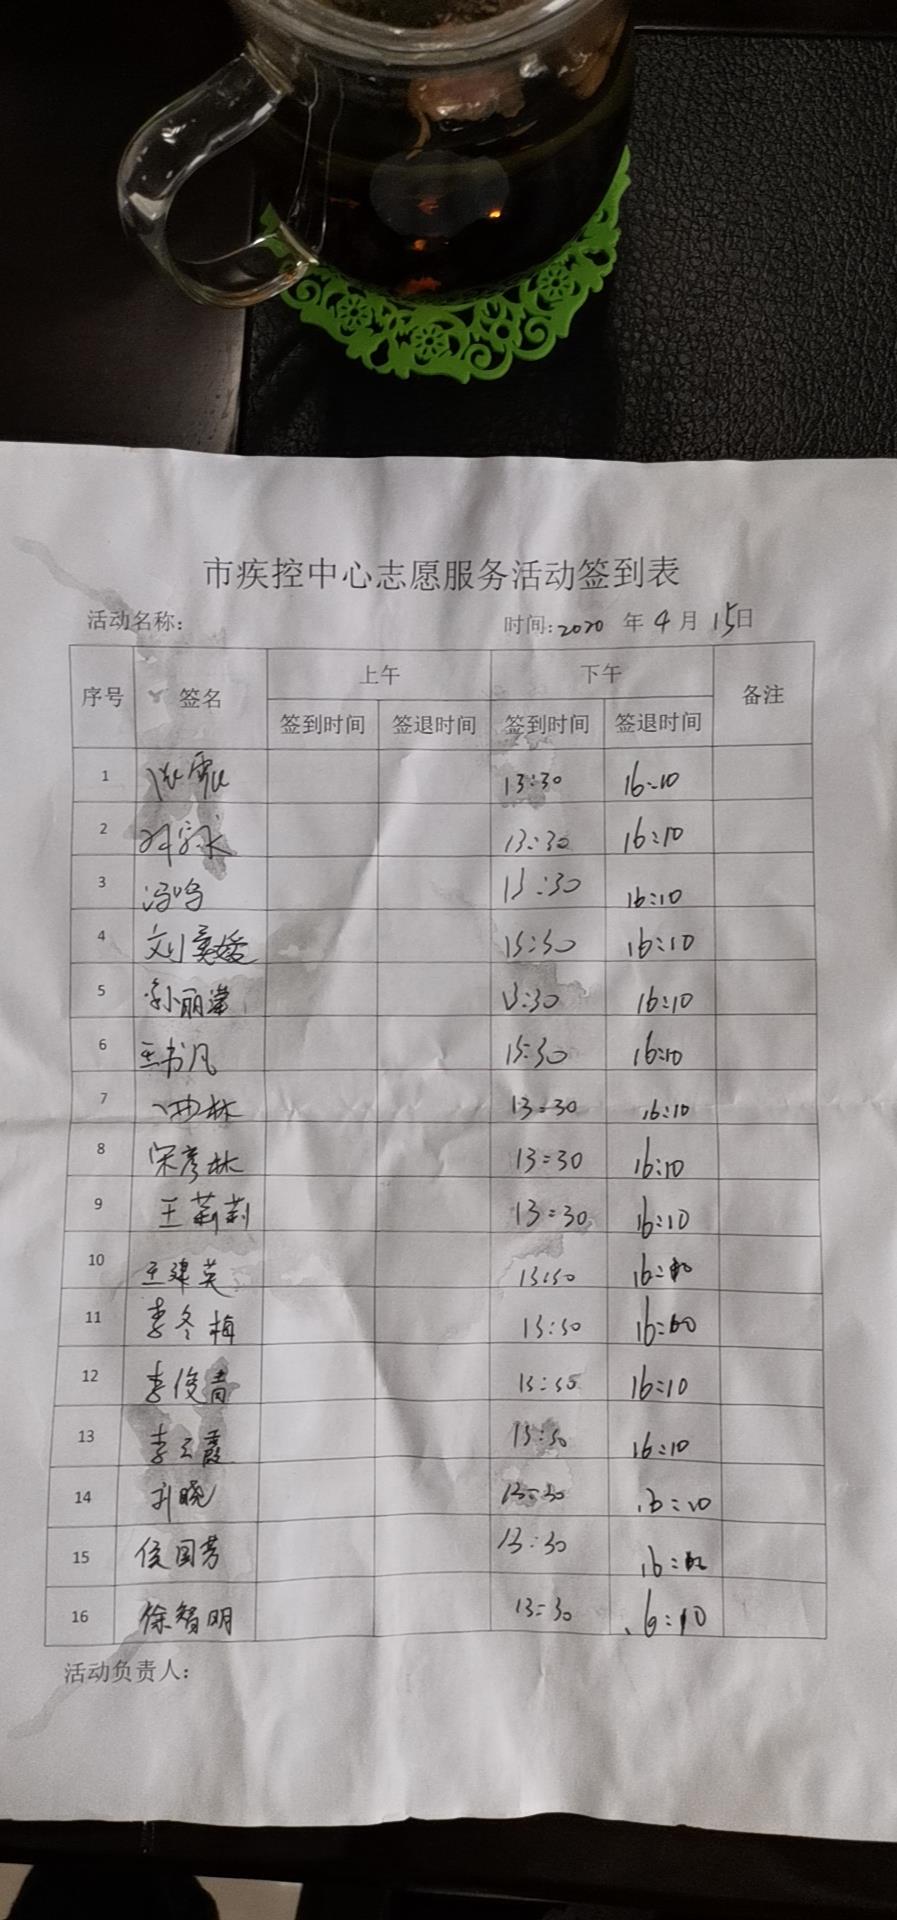 市疾控中心志愿服务活动签到表
活动名称: 时间:2020 年 4 月 15日
序号 签名 上午 下午 备注
签到时间 签退时间 签到时间 签退时间
1 13:30 16:10
2 13:30 16:10
3 冯鸣 13:30 16:10
4 13:30 16:10
5 13:30 16:10
6 王书凡 13:30 16:10
7 曲林 13:30 16:10
8 宋彦林 13:30 16:10
9 王莉莉 13:30 16:10
10 王建英 13:30
11 李冬梅 13:30
12 李俊青 13:30 16:10
13 李云霞 13:30 16:10
14 刘晓 13:30 16:10
15 侯国芳 13:30
16 徐智明 13:30 16:10
活动负责人: